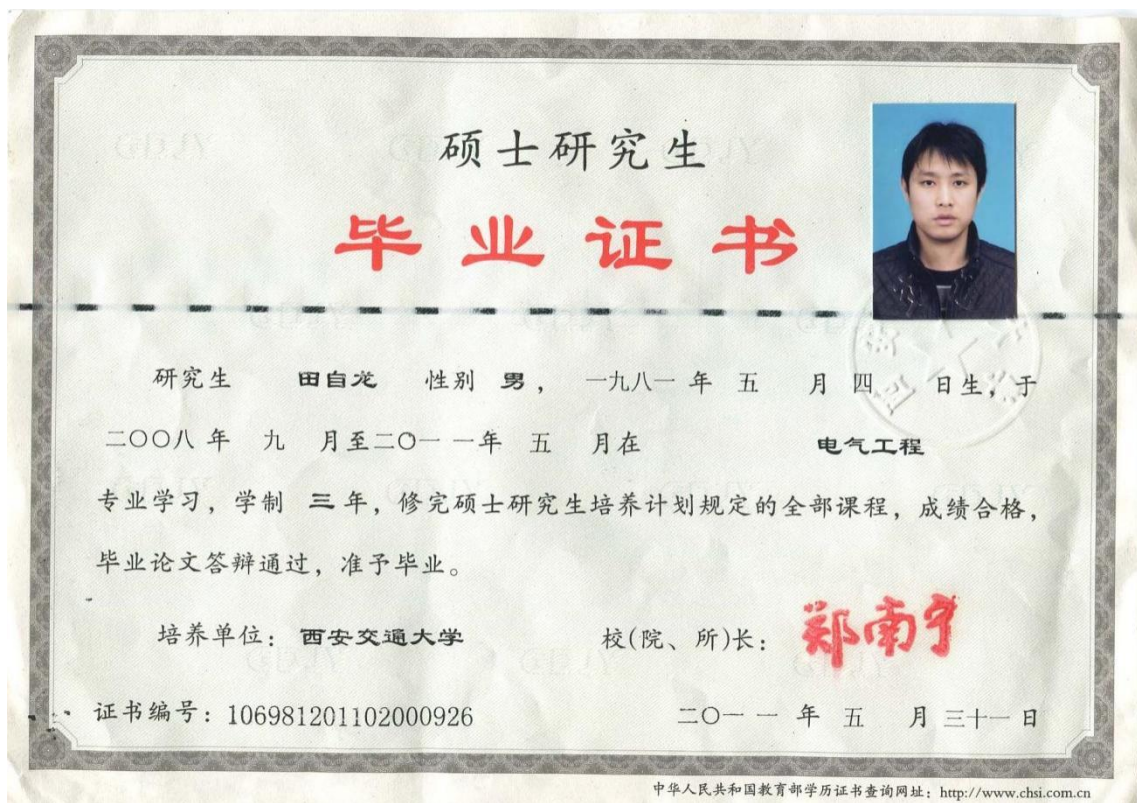 硕士研究生
毕业证书
研究生 田自龙 性别 男， 一九八一 年 五 月 四 日生，于
二〇〇八 年 九 月至二〇一一年 五 月在 电气工程
专业学习，学制 三 年，修完硕士研究生培养计划规定的全部课程，成绩合格，
毕业论文答辩通过，准予毕业。
培养单位：西安交通大学 校(院、所)长：郑南宁
证书编号：106981201102000926 二〇一一 年 五 月 三十一 日
中华人民共和国教育部学历证书查询网址：http://www.chsi.com.cn